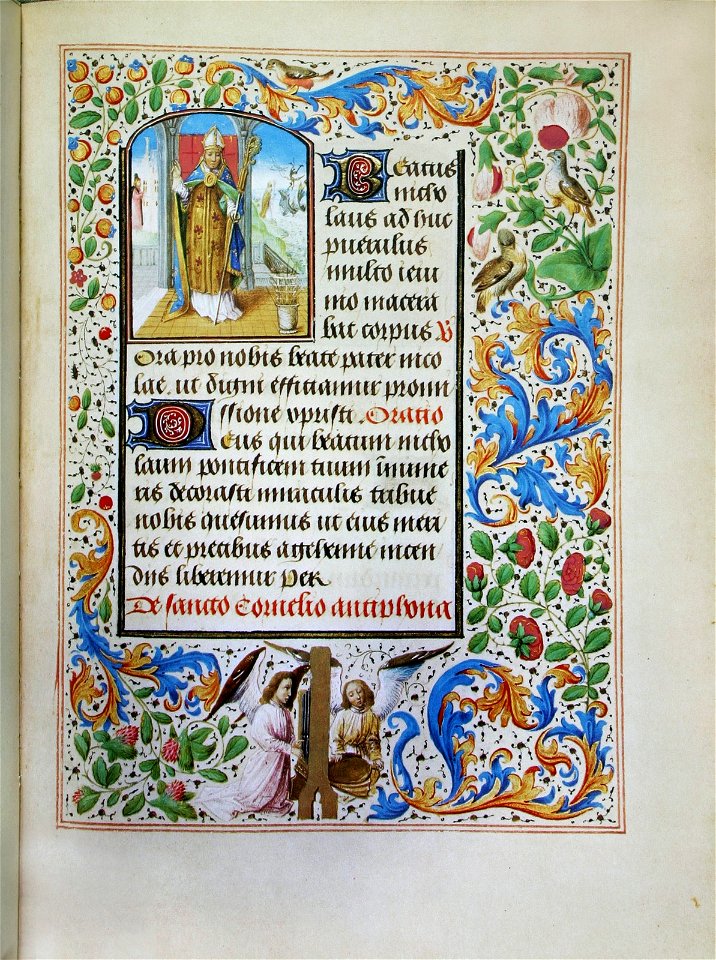 Beatus
nicho
laus ad huc
puerulus
multo ieiu
nio macera
bat corpus V
Ora pro nobis beate pater nico
lae, ut digni efficiamur promi
ssione xpristi. Oratio
Deus qui beatum nicho
laum pontificem tuum innume
ris decorasti miraculis tribue
nobis quesumus ut eius meri
tis et precibus a gehenne incen
diis liberemur Per
De sancto Cornelio antiphona